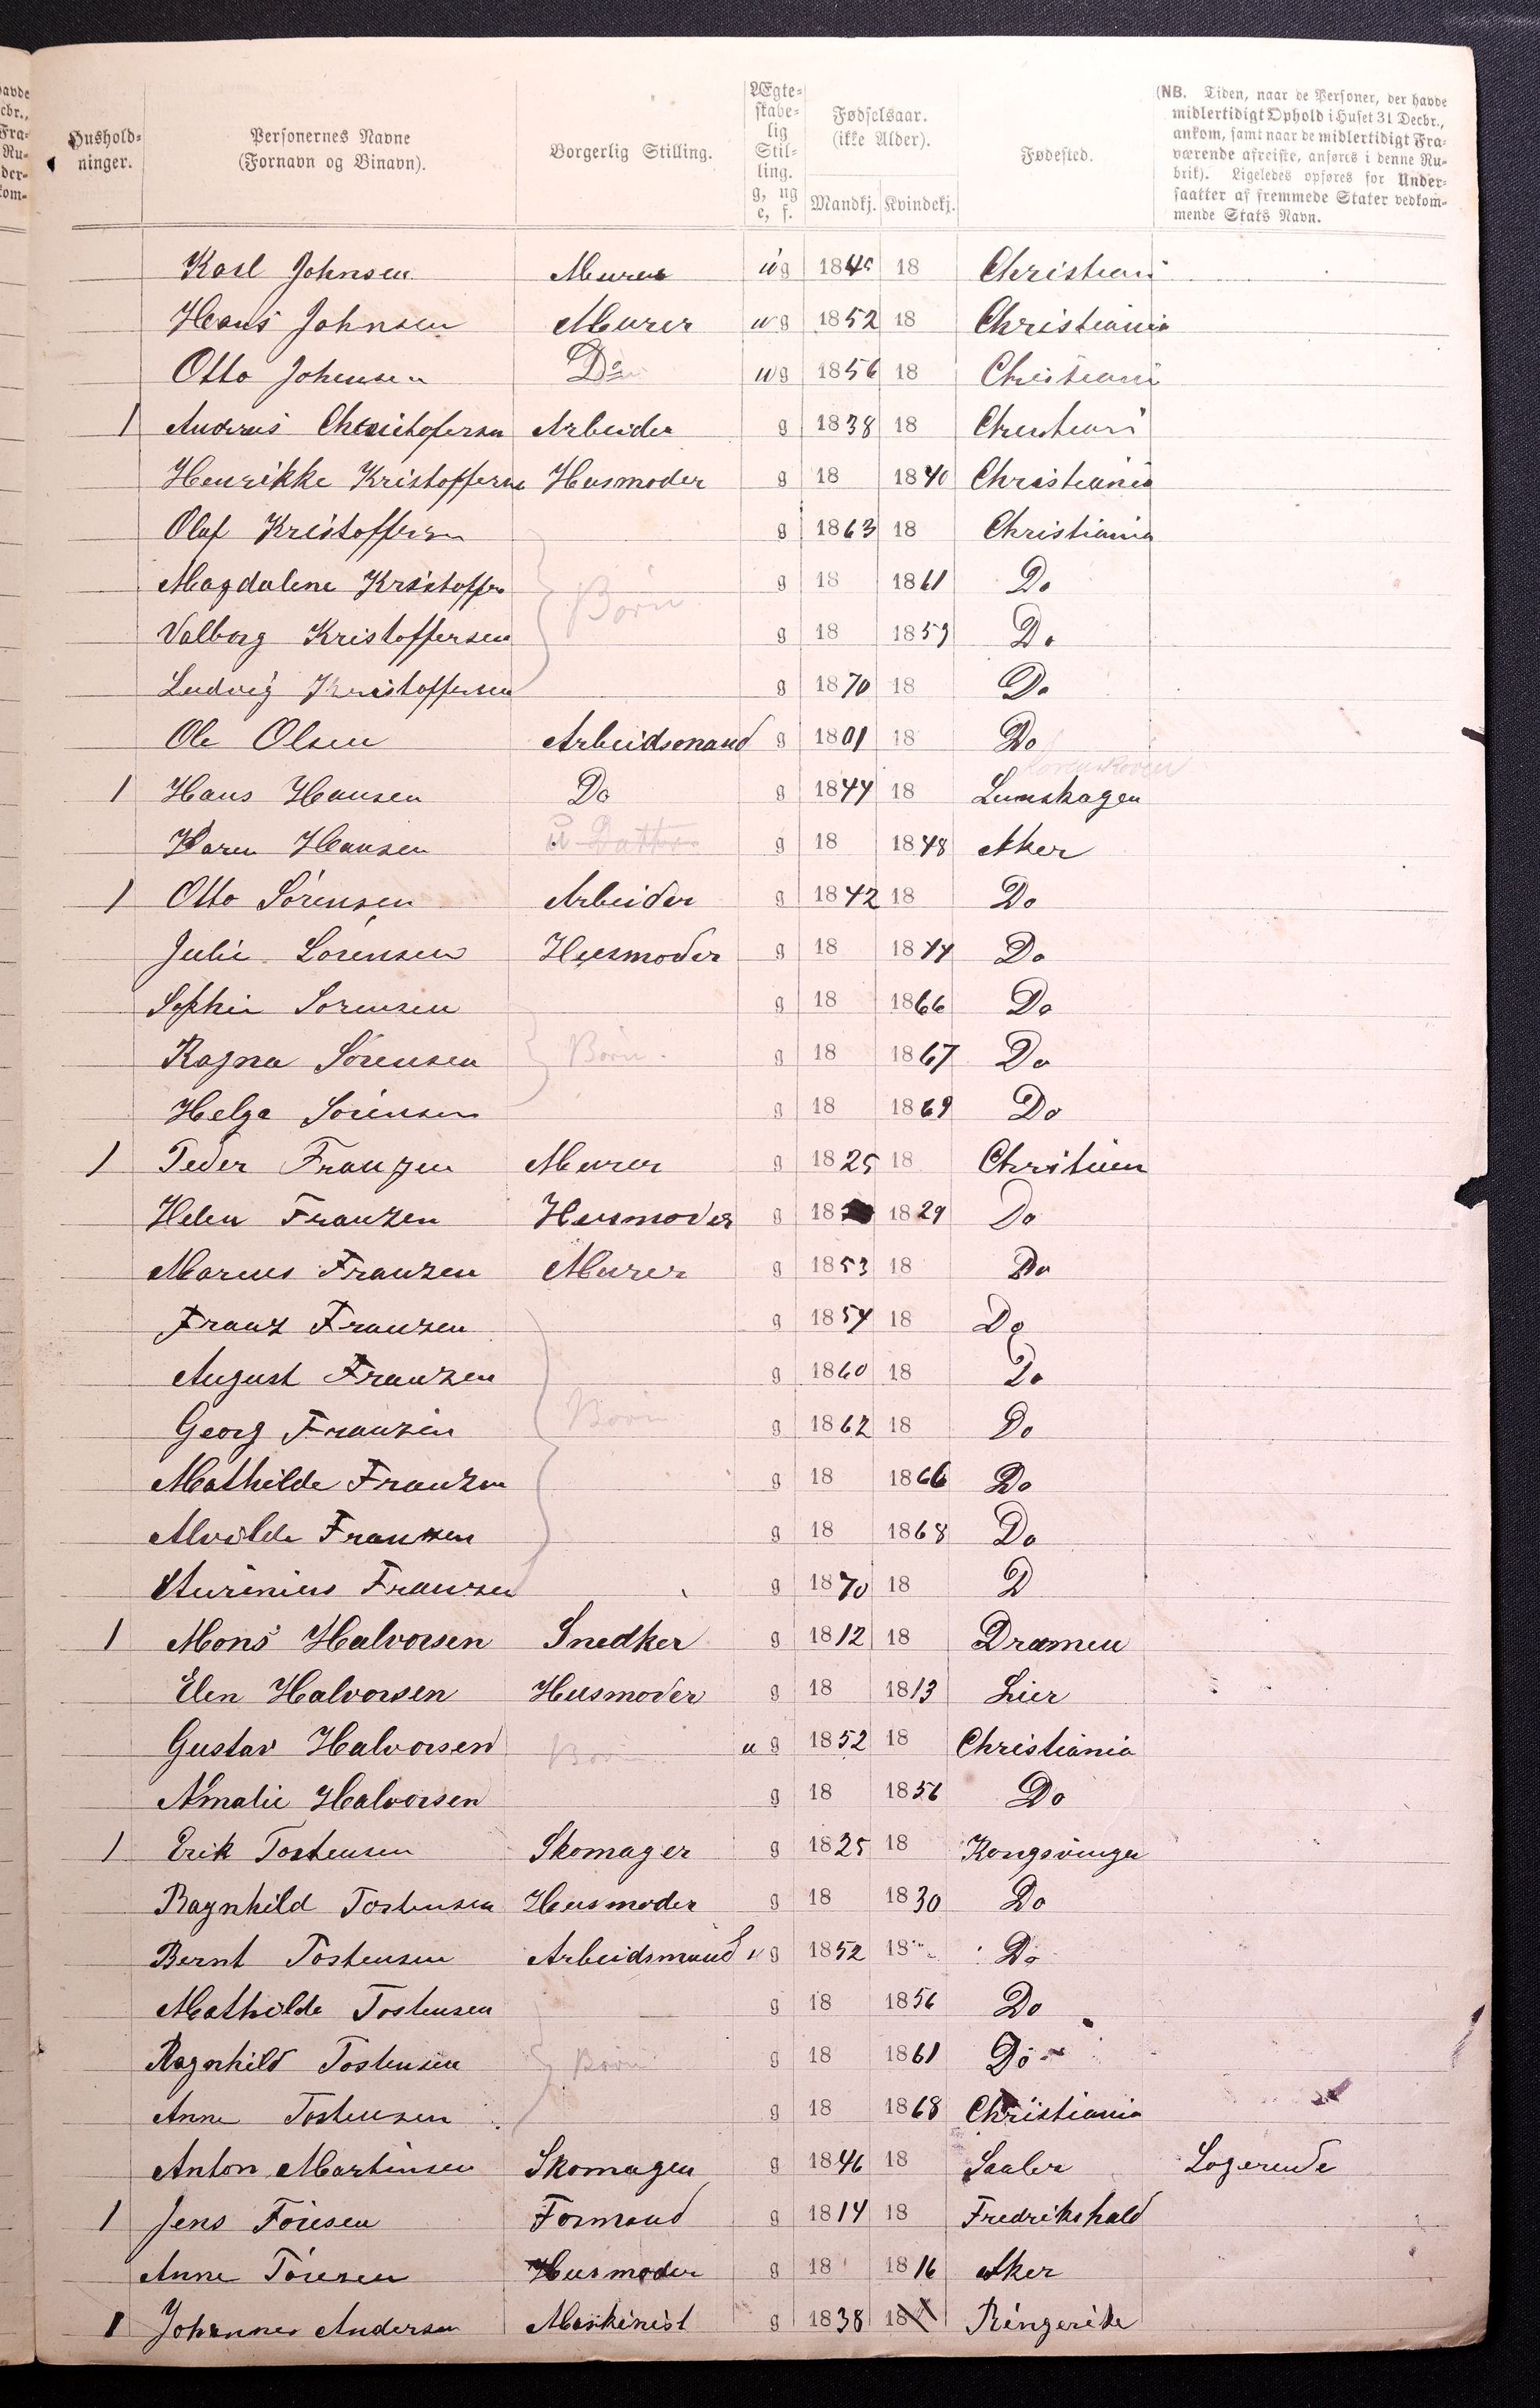 Hushold-ninger. Personernes Navne (Fornavn og Binavn). Borgerlig Stilling. Ægte-skabe-lig Stil-ling. g, ug e, f. Fødselsaar. (ikke Alder). Mandkj. Kvindekj. Fødested. (NB. Tiden, naar de Personer, der havde midlertidigt Ophold i Huset 31 Decbr., ankom, samt naar de midlertidigt Fra-værende afreiste, anføres i denne Ru-brik). Ligeledes opføres for Under-saatter af fremmede Stater vedkom-mende Stats Navn.
Karl Johnsen Murer ug 1845 18 Christiani
Hans Johnsen Murer ug 1852 18 Christiania
Otto Johnsen Do ug 1856 18 Christiani
1 Andreas Christofersen Arbeider g 1838 18 Christiani
Henrikke Kristoffersen Husmoder g 18 1840 Christiania
Olaf Kristoffersen g 1863 18 Christiania
Magdalene Kristoffer Børn g 18 1861 Do
Valborg Kristoffersen g 18 1859 Do
Ludvig Kristoffersen g 1870 18 Do
Ole Olsen Arbeidsmand g 1801 18 Do
1 Hans Hansen Do g 1844 18 Lunskagen
Karen Hansen g 18 1848 Aker
1 Otto Sörensen Arbeider g 1842 18 Do
Julie Sörensen Husmoder g 18 1844 Do
Sophie Sorensen g 18 1866 Do
Ragna Sörensen Børn g 18 1867 Do
Helga Sörensen g 18 1869 Do
1 Peder Franzen Murer g 1825 18 Christian
Helen Franzen Husmoder g 18 1829 Do
Marius Franzen Murer g 1853 18 Do
Franz Franzen g 1854 18 Do
August Franzen g 1860 18 Do
Georg Franzen Børn g 1862 18 Do
Mathilde Franzen g 18 1866 Do
Alvilde Franzen g 18 1868 Do
Franzen g 1870 18 D
1 Mons Halvorsen Snedker g 1812 18 Dramen
Elen Halvorsen Husmoder g 18 1813 Lier
Gustav Halvorsen Børn ug 1852 18 Christiania
Amalie Halvorsen g 18 1856 Do
1 Erik Tostensen Skomager g 1825 18 Kongsvinger
Ragnhild Tostensen Husmoder g 18 1830 Do
Bernt Tostensen Arbeidsmand ug 1852 18 Do
Mathilde Tostensen g 18 1856 Do
Ragnhild Tostensen Børn g 18 1861 Do
Anne Tostensen g 18 1868 Christiania
Anton Martinsen Skomager g 1846 18 Saaler Logerende
1 Jens Töresen Formand g 1814 18 Fredrikshald
Anne Töresen Husmoder g 18 1816 Aker
1 Johannes Andersen Maskinist g 1838 18 Ringerike